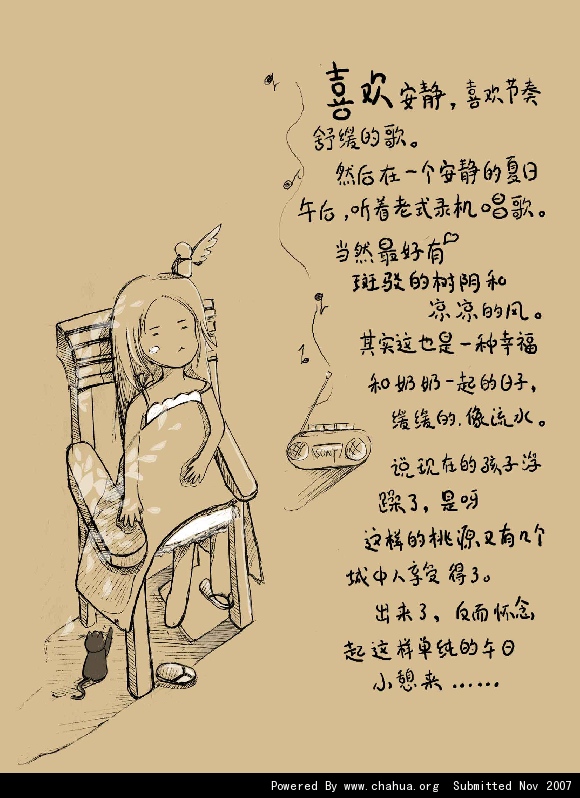 喜欢安静，喜欢节奏
舒缓的歌。
然后在一个安静的夏日
午后，听着老式录机唱歌。
当然最好有
斑驳的树阴和
凉凉的风。
其实这也是一种幸福
和奶奶一起的日子，
缓缓的.像流水。
说现在的孩子浮
躁了，是呀
这样的桃源又有几个
城中人享受得了。
出来了，反而怀念
起这样单纯的午日
小憩来……
SONY
Powered By www.chahua.org Submitted Nov 2007